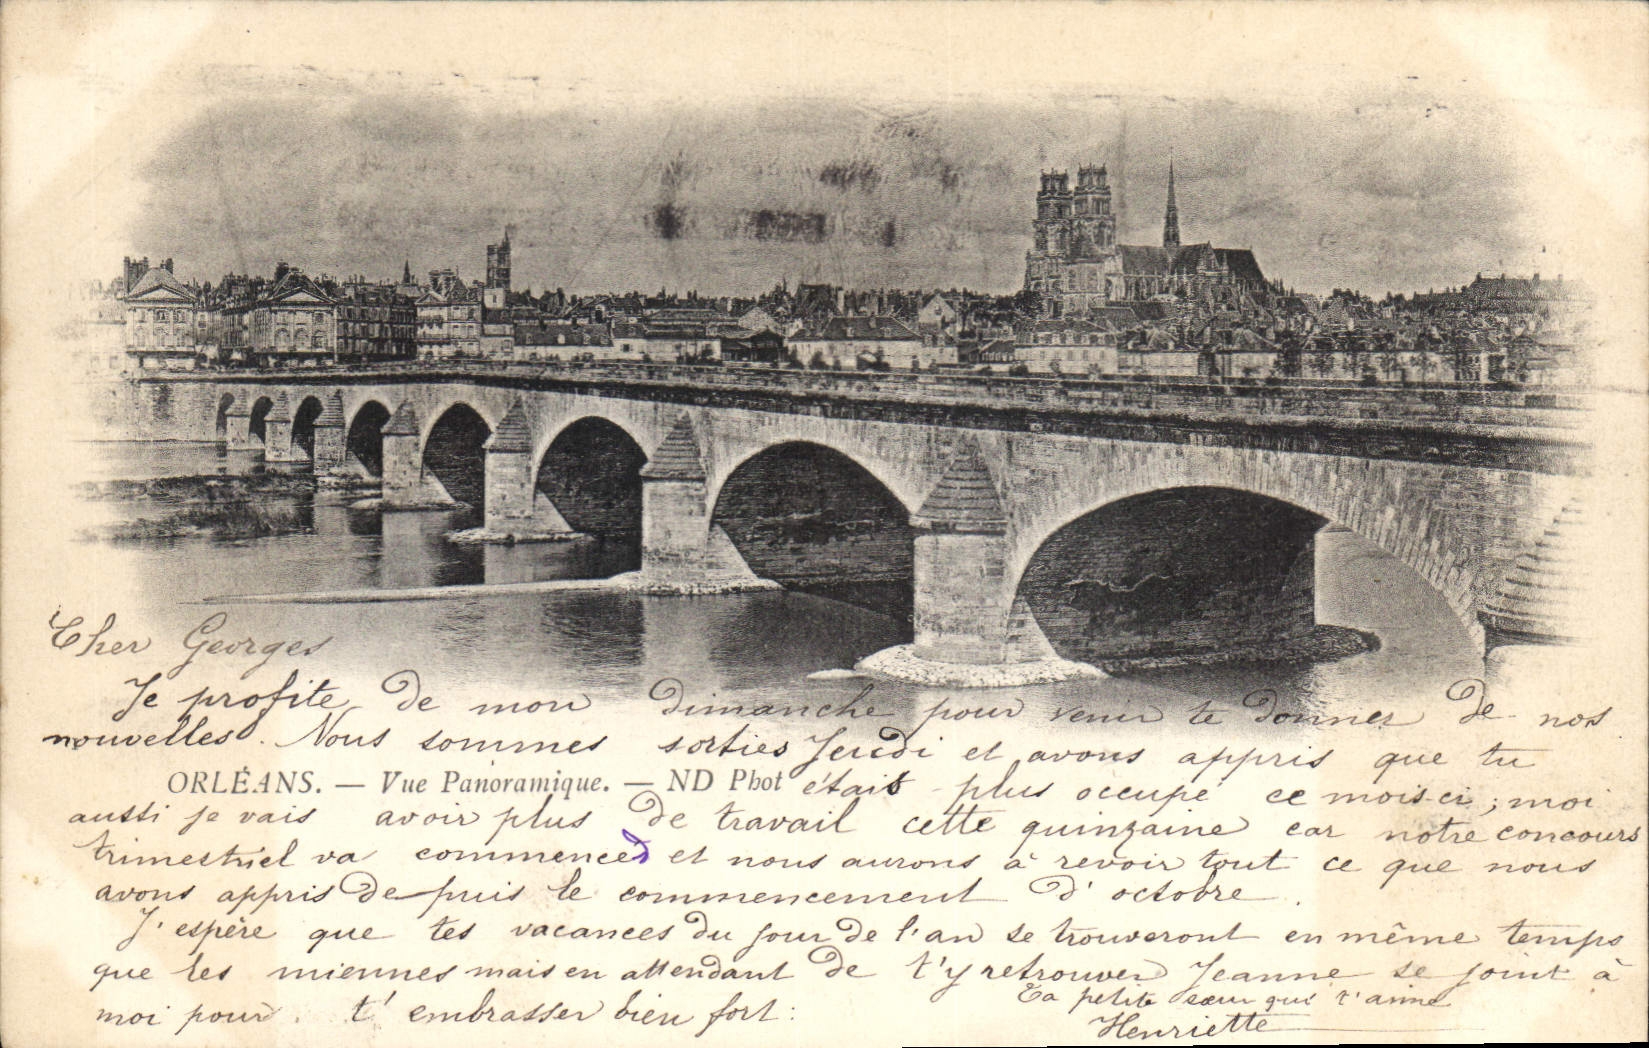 Cher Georges
Je profite de mon dimanche pour venir te donner de nos
nouvelles. Nous sommes sorties Jeudi et avons appris que tu
ORLÉANS. — Vue Panoramique. — ND Phot
étais plus occupé ce mois-ci ; moi
aussi je vais avoir plus de travail cette quinzaine car notre concours
trimestriel va commencer et nous aurons à revoir tout ce que nous
avons appris depuis le commencement d'octobre.
J'espère que tes vacances du jour de l'an se trouveront en même temps
que les miennes mais en attendant de t'y retrouver Jeanne se joint à
moi pour t'embrasser bien fort :
Ta petite sœur qui t'aime
Henriette